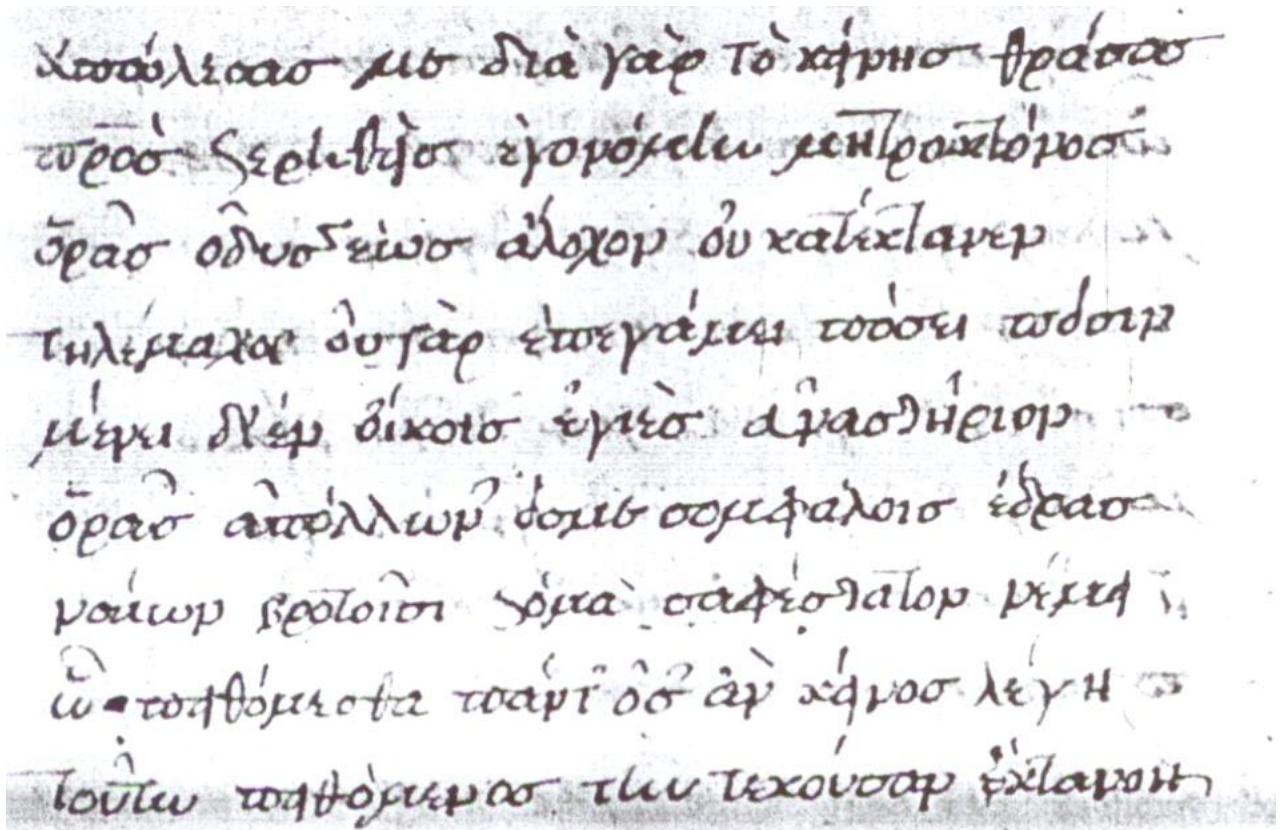 ἀπώλεσας με διὰ γὰρ τὸ κείνης θράσος
π̅ρ̅ο̅ς στερηθεὶς ἐγενόμην μητροκτόνος
ὁρᾶς ὀδυσσέως ἄλοχον οὐ κατέκτανεν
τηλέμαχος οὐ γὰρ ἐπεγάμει πόσει πόσιν
μένει δ' ἐν οἴκοις ὑγιὲς
ὁρᾶς ἀπόλλων' ὃς μεσομφάλοις ἕδρας
ναίων βροτοῖσι στόμα σαφέστατον νέμει
ὧ πειθόμεσθα πάντ' ὅσ' ἂν κεῖνος λέγη
τούτω πειθόμενος τὴν τεκοῦσαν ἔκτανον